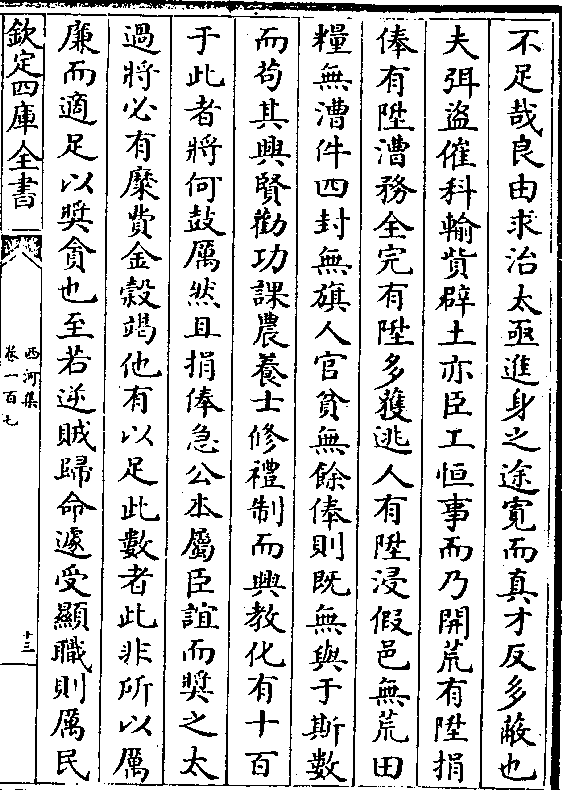 不足哉良由求治太亟進身之途寛而真才反多蔽也
夫弭盜催科輸貲辟土亦臣工恒事而乃開荒有陞捐
俸有陞漕務全完有陞多獲逃人有陞浸假邑無荒田
糧無漕件四封無旗人官貧無餘俸則既無與于斯數
而苟其興賢勸功課農養士修禮制而興教化有十百
于此者將何鼓厲然且捐俸急公本屬臣誼而奬之太
過將必有糜費金穀竭他有以足此數者此非所以厲
廉而適足以奬貪也至若逆賊歸命遽受顯職則厲民
欽定四庫全書
西河集
卷一百七
十三